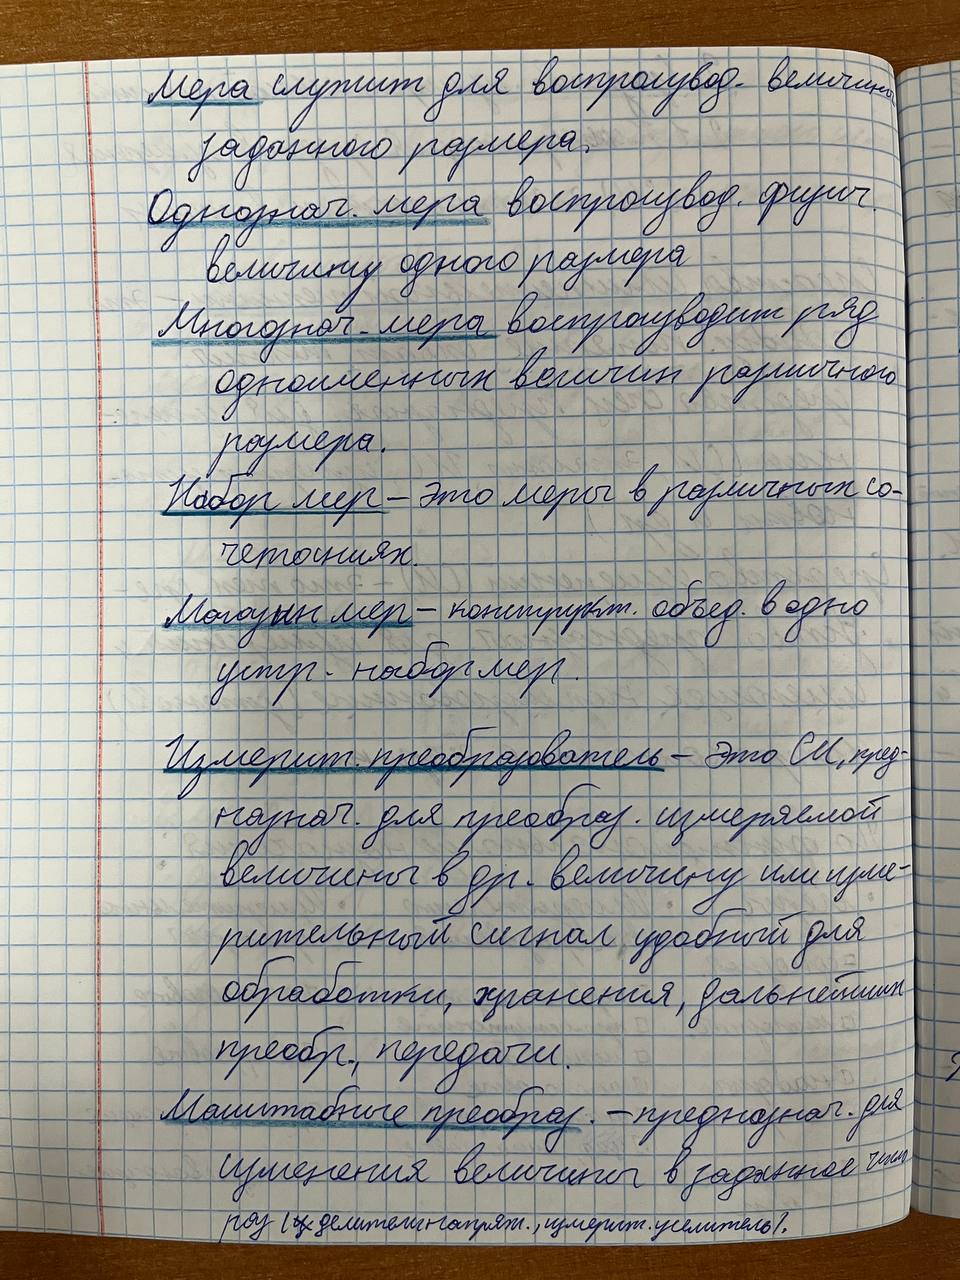 Мера служит для воспроизвод. величины
заданного размера.
Однознач. мера воспроизвод. физич
величину одного размера
Многознач. мера воспроизводит ряд
одноименных величин различного
размера.
Набор мер – это меры в различных со-
четаниях.
Магазин мер – конструкт. объед. в одно
устр. набор мер.
Измерит. преобразователь – это СИ, пред-
назнач. для преобраз. измеряемой
величины в др. величину или изме-
рительный сигнал удобный для
обработки, хранения, дальнейших
преобр., передачи.
Масштабные преобраз. – предназнач. для
изменения величины в заданное число
раз ( делители напряж., измерит. усилитель).